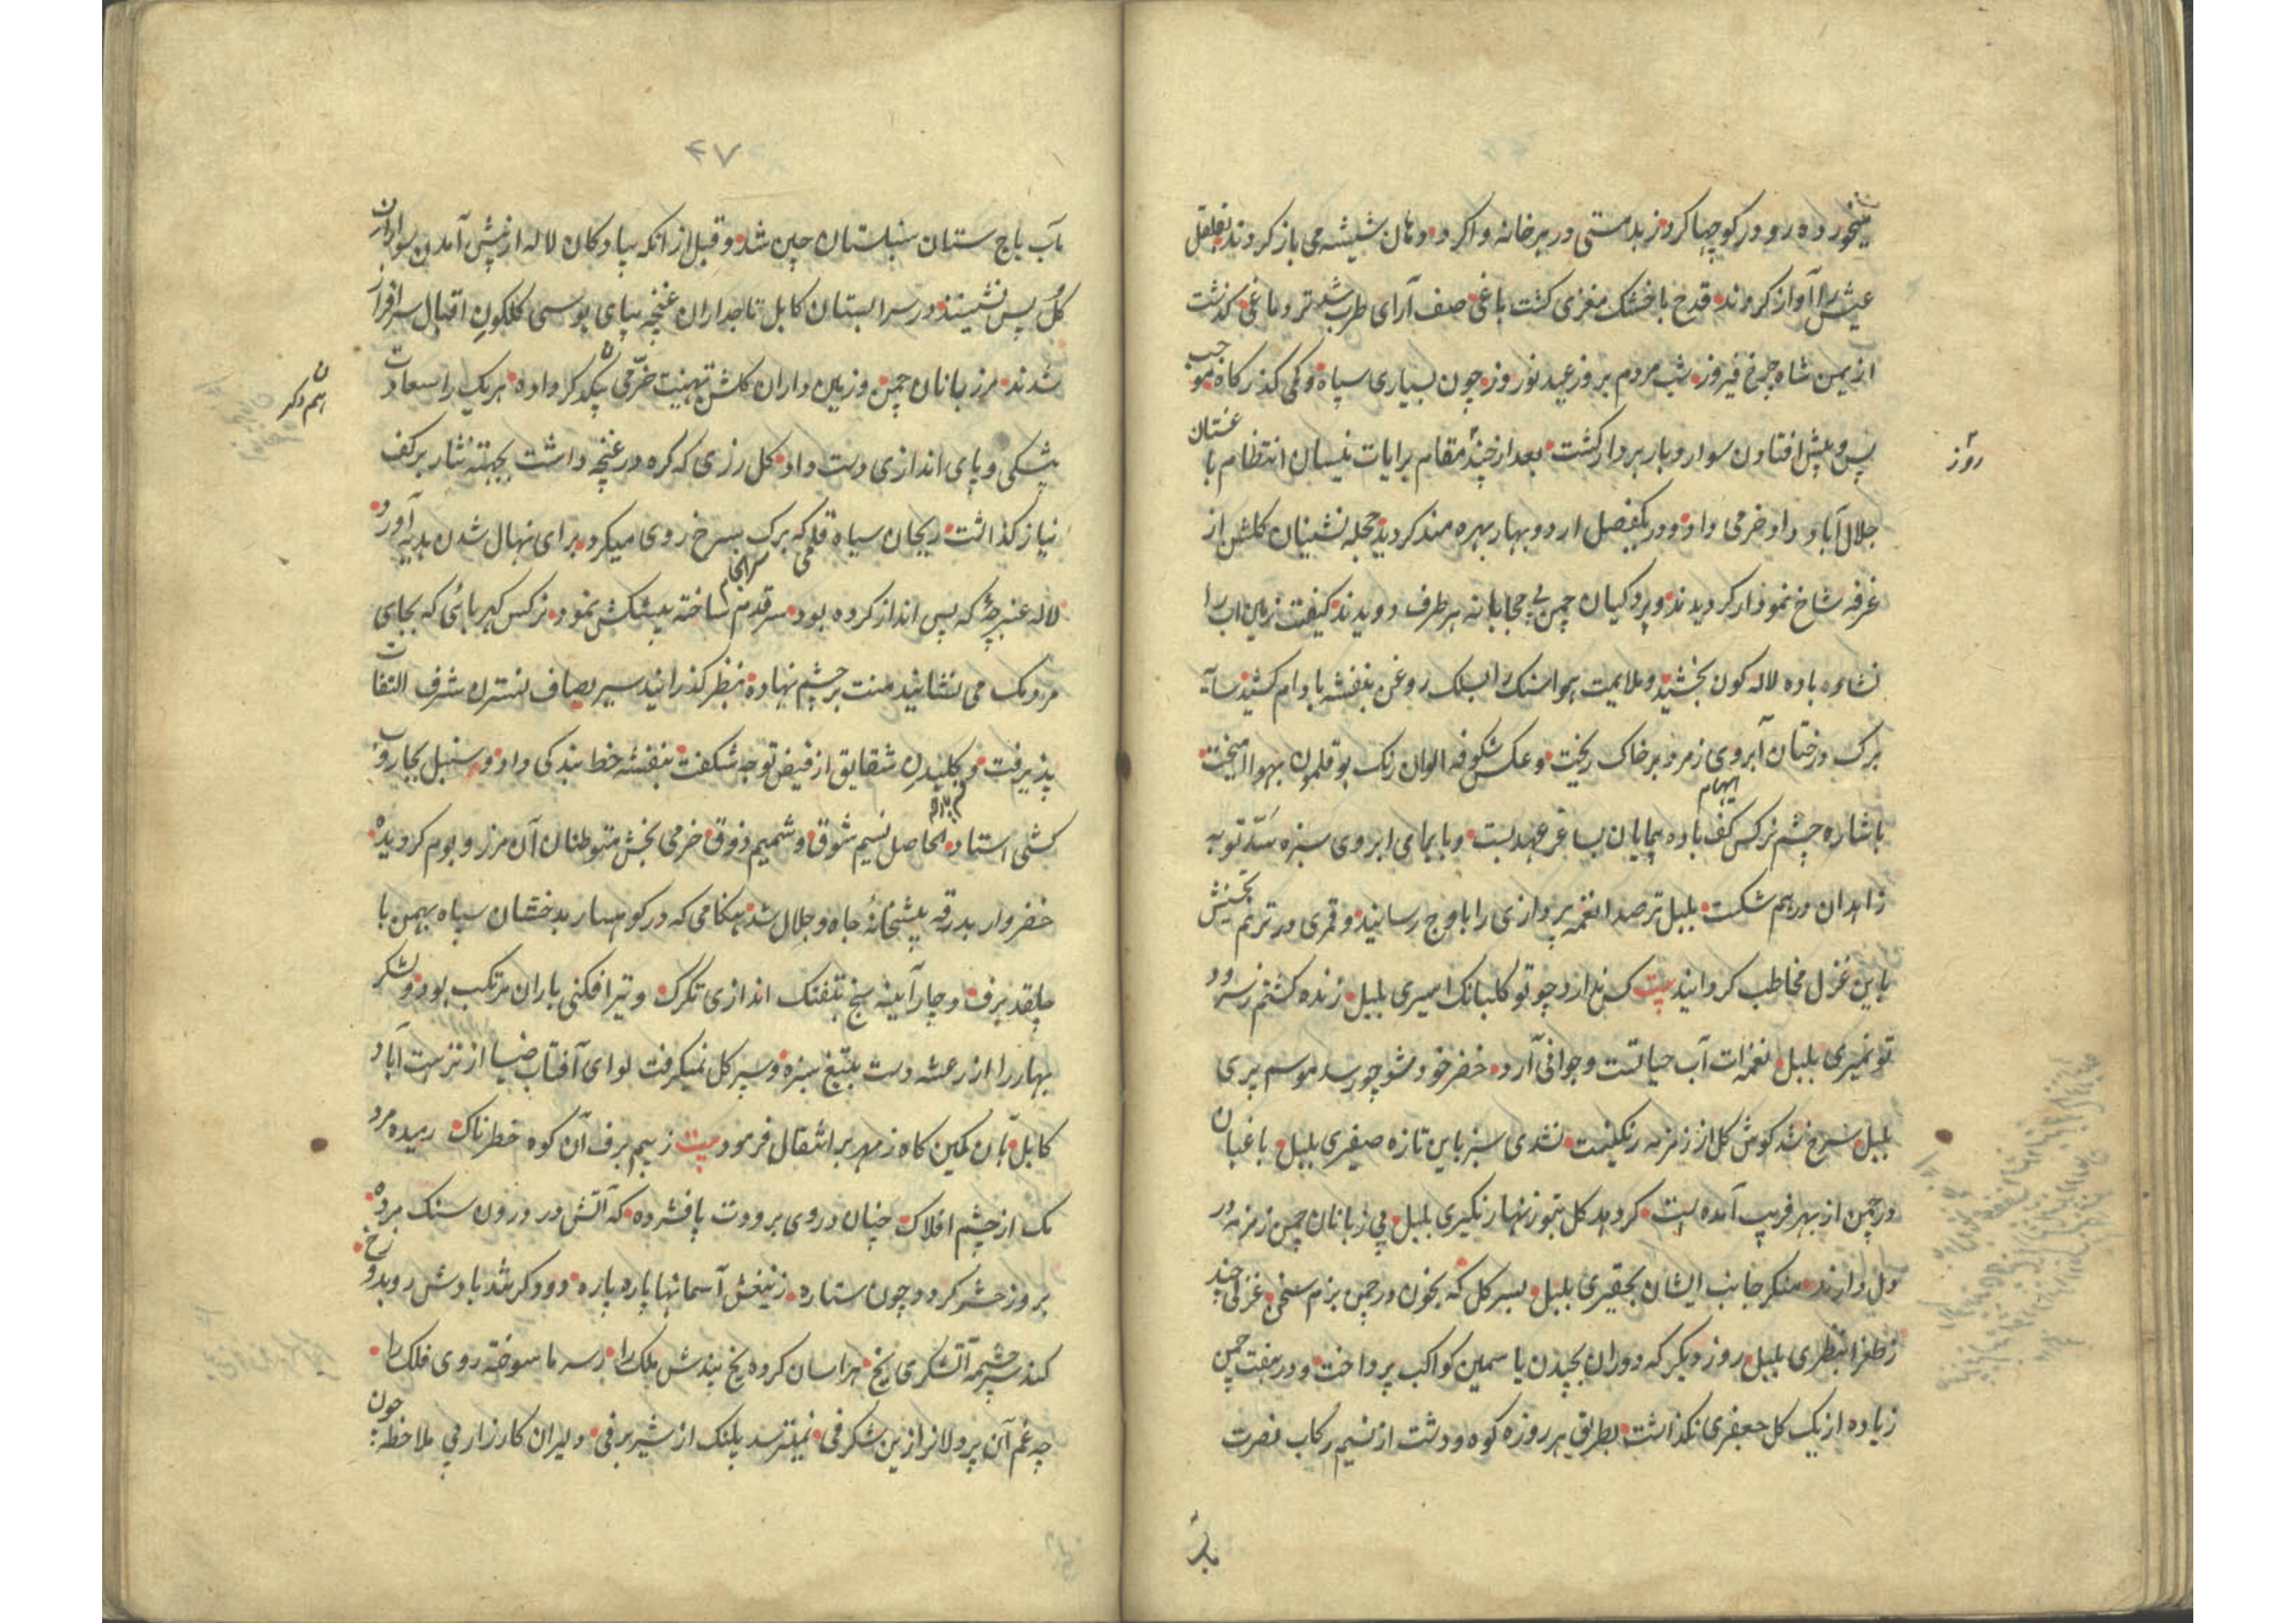 میخورد و ره رو در کوچها کرد ز بدمستی در هر خانه وا کرد و دهان شیشه می باز کردند بقلقل
عیش را آواز کردند قدح با خشک مغزی گشت باغی صف آرای طرب شد تر دماغی گذشت
از یمن شاه چرخ فیروز شب مردم بروز عید نوروز چون بسیاری سپاه و کمی گذرگاه موجب
پس و پیش افتادن سوار و بار بردار گشت بعد از چند مقام برایات نیسان انتظام باغستان
روز
جلال آباد داد خرمی داد و در یکفصل از دو بهار بهره مند گردید حجله نشینان گلشن از
غرفه شاخ نمودار گردیدند و پردگیان چمن بی محابانه بهر طرف دویدند کیفیت زمین آب را
نشاءه باده لاله گون بخشید و ملایمت هوا سنگ را بسلک روغن بنفشه بادام کشید سایه
برگ درختان آبروی زمرد بر خاک ریخت و عکس شکوفه الوان رنگ بوقلمون بهوا آمیخت
ایهام
باشاره چشم نرگس کف باده پیمایان بساغر عهد بست و بایمای ابروی سبزه سد توبه
زاهدان درهم شکست بلبل تر صدا نغمه پردازی را باوج رسانید و قمری در ترنم تجنیش
باین غزل مخاطب گردانید بیت کس ندارد چو تو گلبانگ اسیری بلبل زنده گشتم ز سرود
تو نمیری بلبل نغمه ات آب حیاتست و جوانی آرد خضر خود شو چو رسد موسم پیری
بلبل سرخ شد گوش گل از زمزمه رنگینت نشدی سبز باین تازه صفیری بلبل باغبان
در چمن از بهر فریب آمده است گر دهد گل بتو زنهار نگیری بلبل بی زبانان چمن زمزمه در
دل دارند منگر جانب ایشان بحقیری بلبل بسر گل که بخون در چمن بزم سخن غزلی چند
ز طغرا بنظری بلبل روز دیگر که دوران بچیدن یاسمین کواکب پرداخت و در هفت چمن
زیاده از یک گل جعفری نگذاشت بطریق هر روزه کوه و دشت از نسیم رکاب نصرت
۴۷
مآب باج ستان سنبلستان چین شد و قبل از آنکه پیادگان لاله از پیش آمدن سواران
گل پس نشینند در سرابستان کابل تاجداران غنچه بپای بوسی گلگون اقبال سرافراز
شدند مرزبانان چمن و زمین داران گلشن تهنیت خرمی بیکدگر داده هر یک را سعادت
اسم دگر
پیشکش و پای اندازی دست داد گل زری که گره در غنچه داشت بجهته نثار بر کف
نیاز گذاشت ریحان سیاه قلمی که برگ بسرخ روی میکرد برای نهال شدن بدیه آورد
سرانجام
لاله عنبرچه که پس انداز کرده بود سر قدم ساخته پیشکش نمود نرگس کهربائی که بجای
مردمک می نشانید منت بر چشم نهاده بنظر گذرانید سیر بصاف نسترن شرف التفات
پذیرفت و گلیدن شقایق از فیض توجه شگفت بنفشه خط بندگی داد و سنبل بجاروب
کشی استاد الحاصل نسیم شوق و شمیم ذوق خرمی بخش متوطنان آن مرز و بوم گردیده
خضروار بدرقه پیشخانه جاه و جلال شد هنگامی که در کوهسار بدخشان سپاه بهمن با
چلقد برف و چار آیینه یخ بتفنگ اندازی تگرگ و تیر افکنی باران مرتکب بود و لشکر
بهار را از رعشه دست بتیغ سبزه و سپر گل نمیگرفت لوای آفتاب ضیا از نزهت آباد
کابل بآن کمین گاه زمهریر انتقال فرمود بیت ز بیم برف آن کوه خطرناک رمیده مرد
مک از چشم افلاک چنان در وی برودت پا فشرده که آتش در درون سنگ مرده
بروز حشر گردد چون ستاره ز تیغش آسمانها پاره پاره دود گر شد بادش روبد و زخ
کند سرچشمه آتشگری یخ هراسان کرده یخ بندش ملک را ز سرما سوخته روی فلک را
چه غم آن پردلانرا زین شگرفی نمیترسد پلنگ از شیر برفی دلیران کارزار بی ملاحظه چون